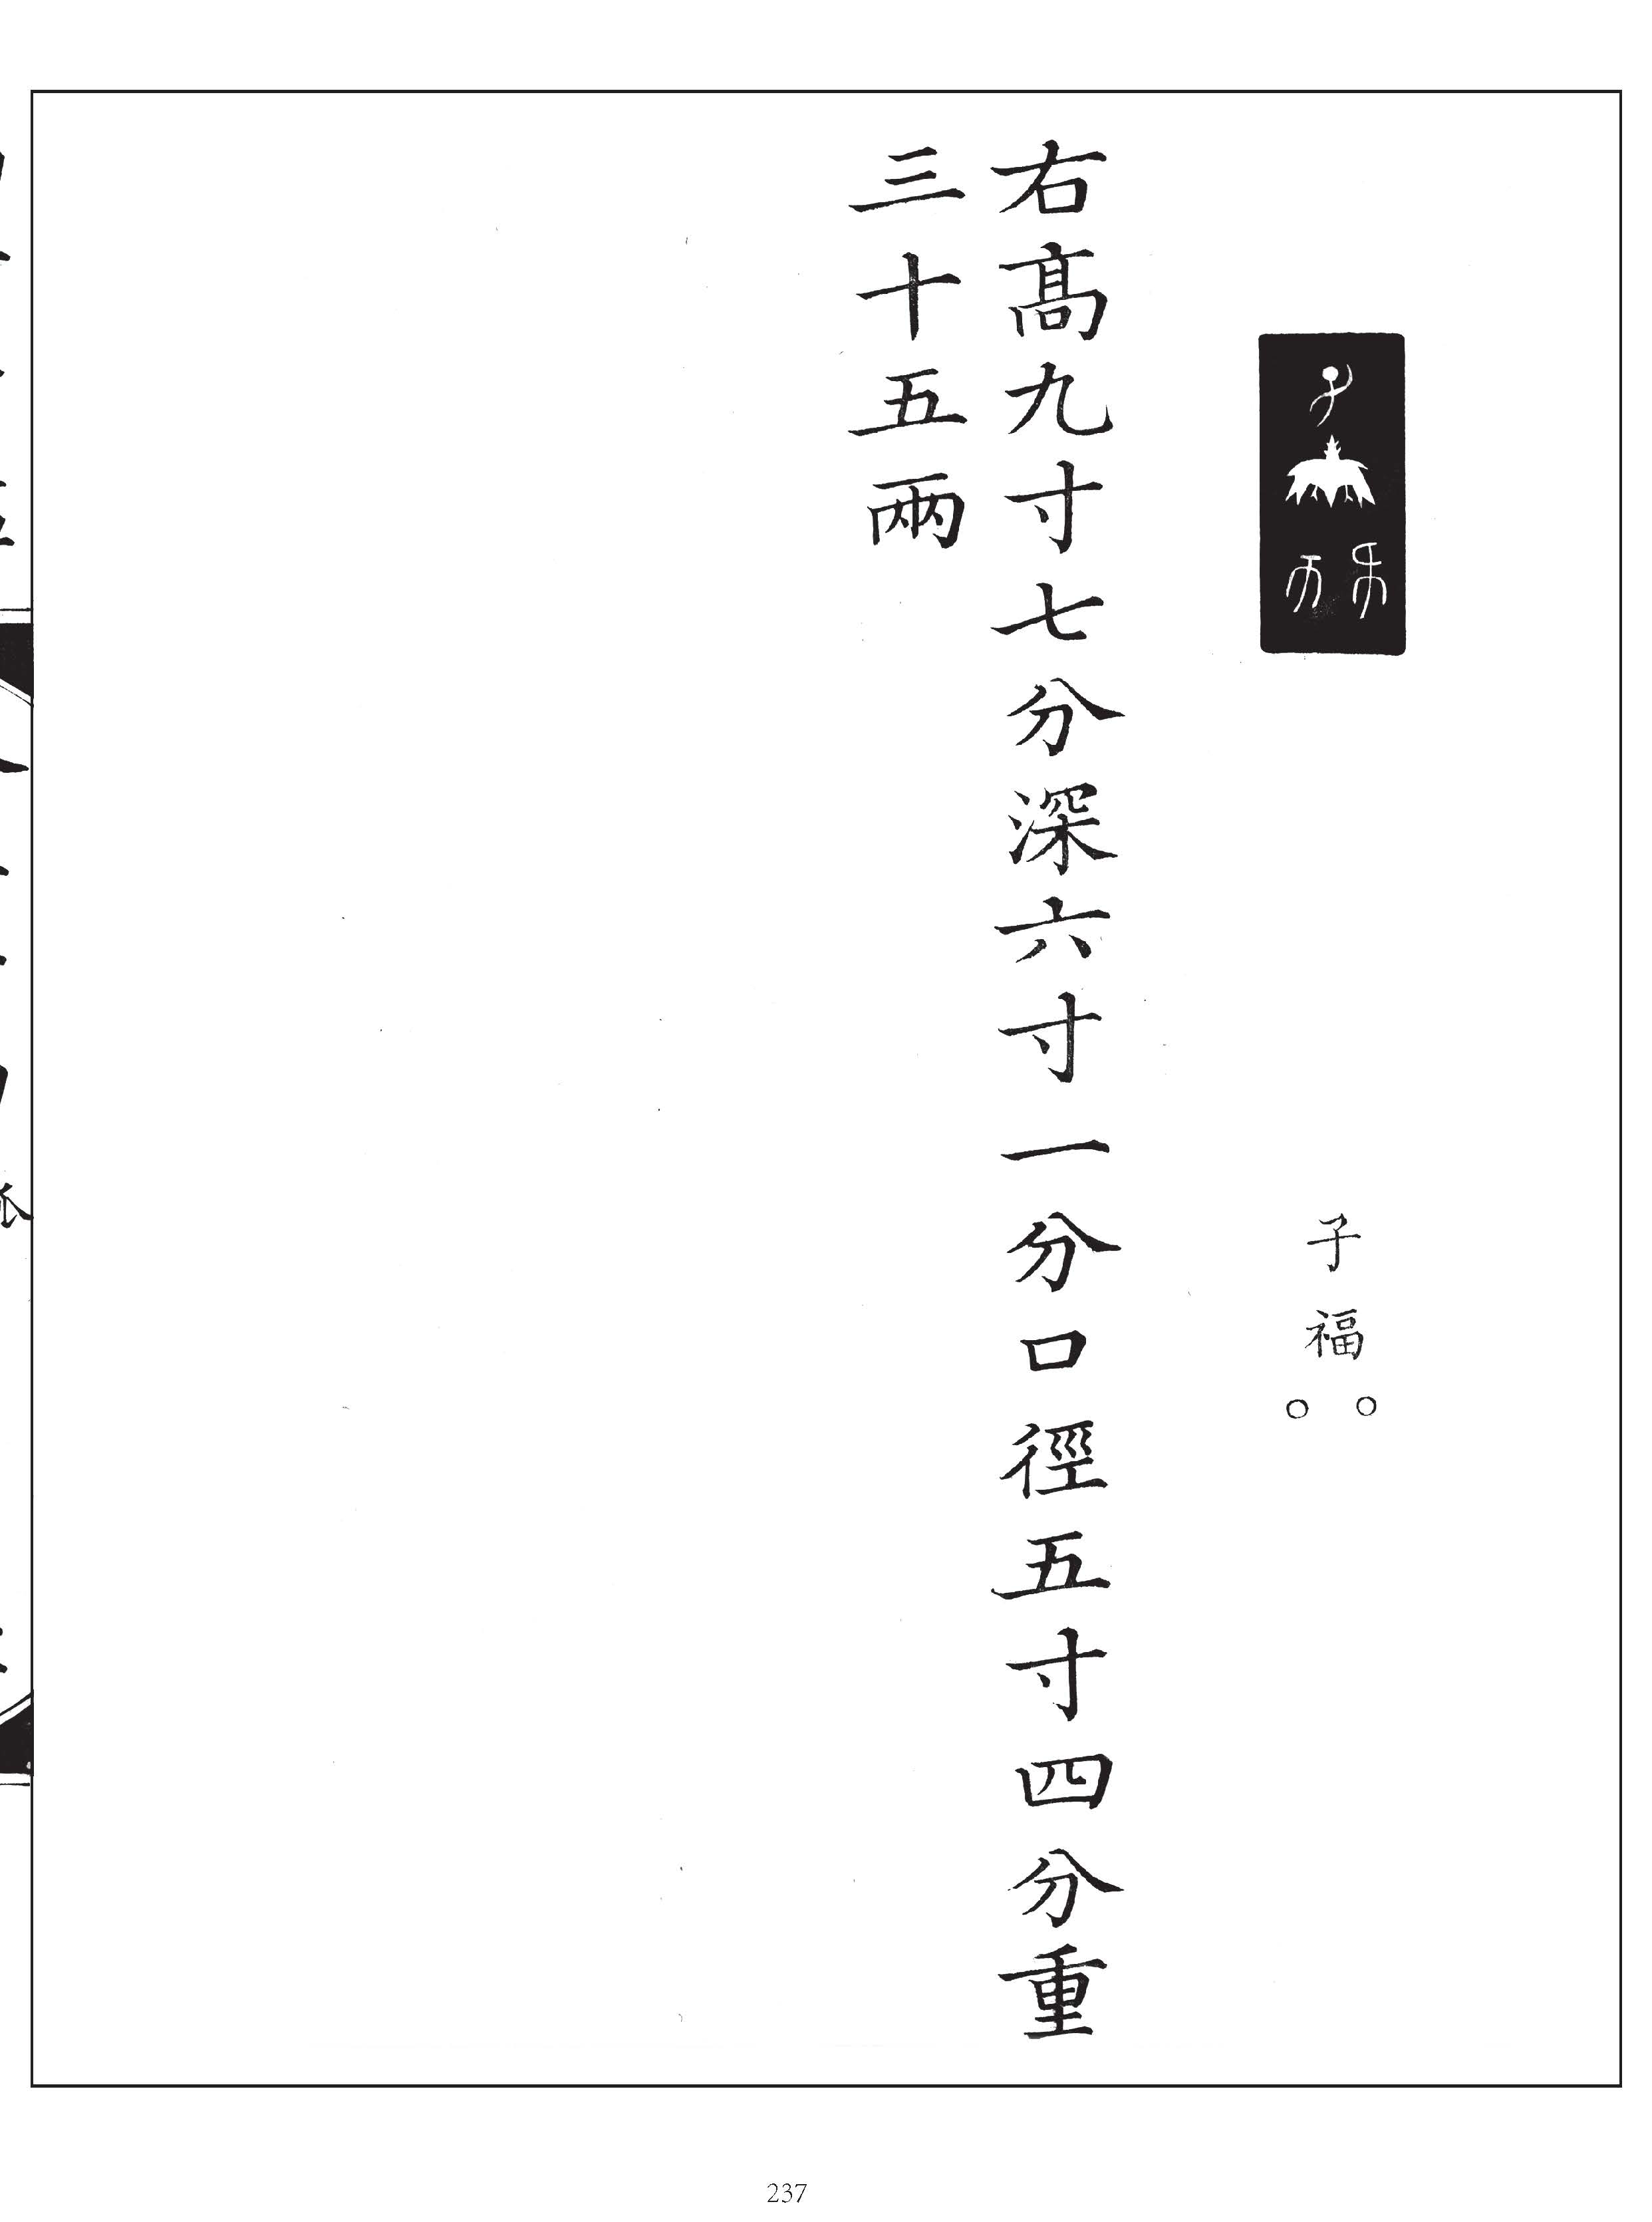 子福
○○
右高九寸七分深六寸一分口徑五寸四分重
三十五兩
237